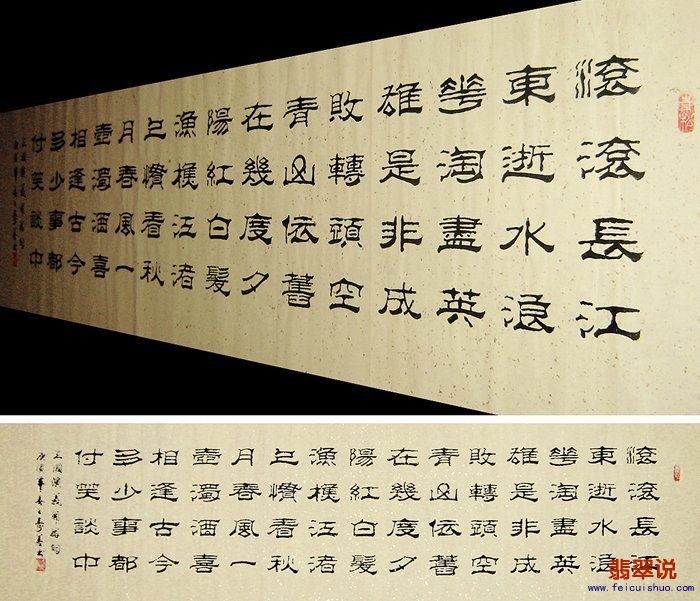 滾滾長江
東逝水浪
花淘盡英
雄是非成
敗轉頭空
青山依舊
在幾度夕
陽紅白髮
漁樵江渚
上慣看秋
月春風一
壺濁酒喜
相逢古今
多少事都
付笑談中
滾滾長江
東逝水浪
花淘盡英
雄是非成
敗轉頭空
青山依舊
在幾度夕
陽紅白髮
漁樵江渚
上慣看秋
月春風一
壺濁酒喜
相逢古今
多少事都
付笑談中
三國演義
翡翠说
www.feicuishuo.com